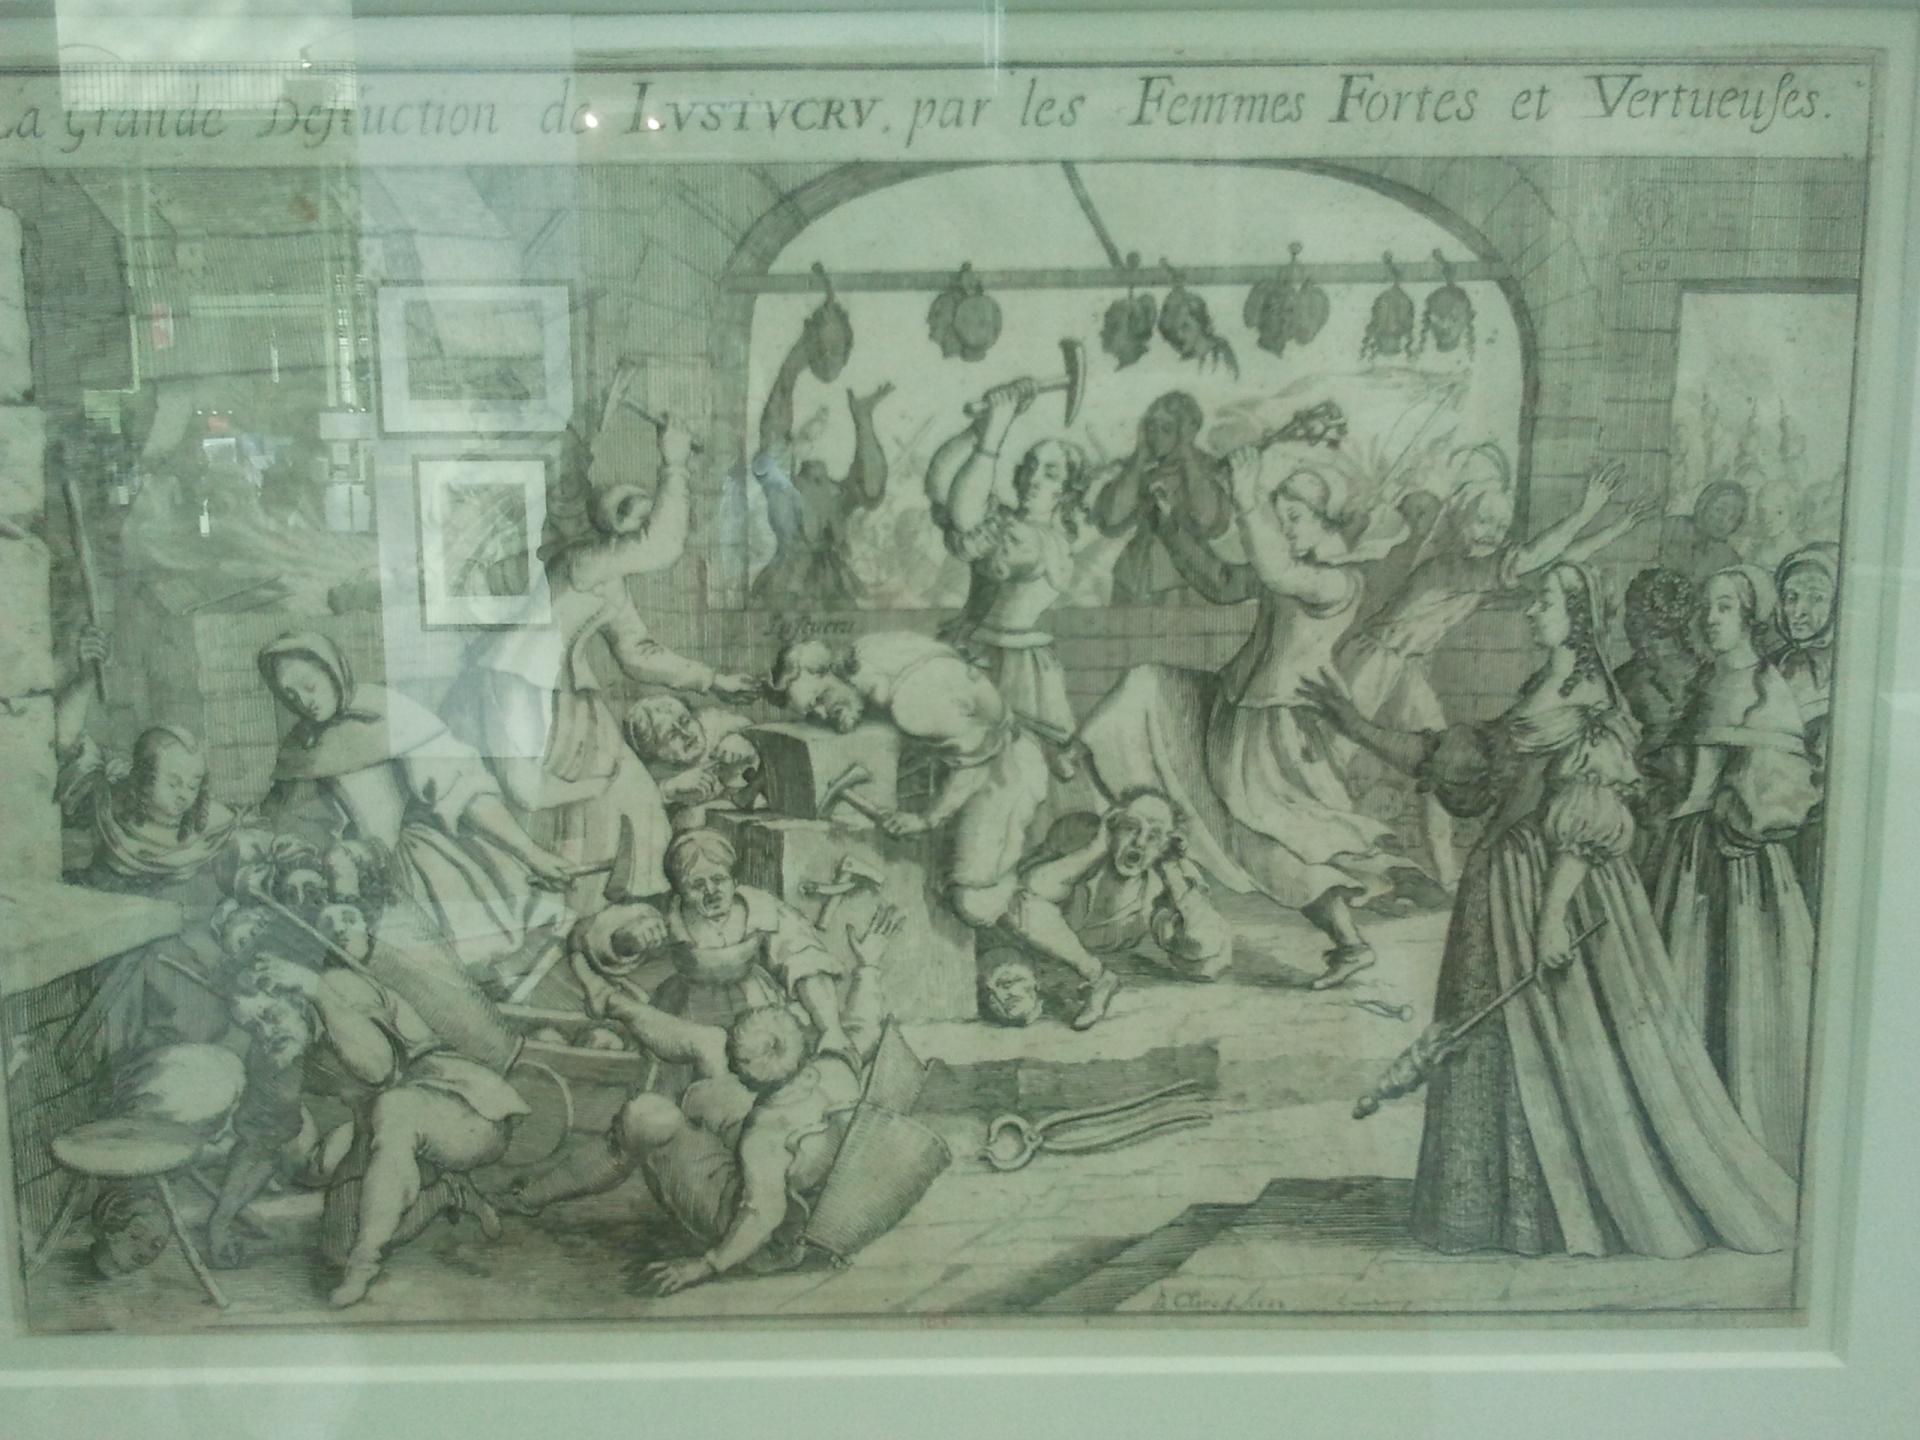 La Grande Destruction de LVSTVCRV, par les Femmes Fortes et Vertueuſes.
Lustucru